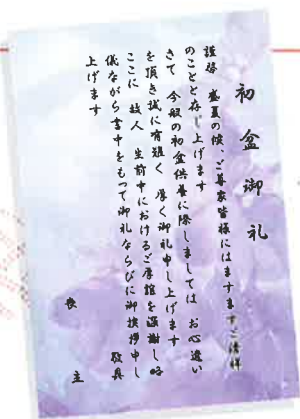 初盆御礼
謹啓 盛夏の候、ご尊家皆様にはますますご清祥
のことと存じ上げます
さて 今般の初盆供養に際しましては お心遣い
を頂き誠に有難く 厚く御礼申し上げます
ここに 故人 生前中におけるご厚誼を深謝し略
儀ながら書中をもって御礼ならびに御挨拶申し
上げます
敬具
喪主